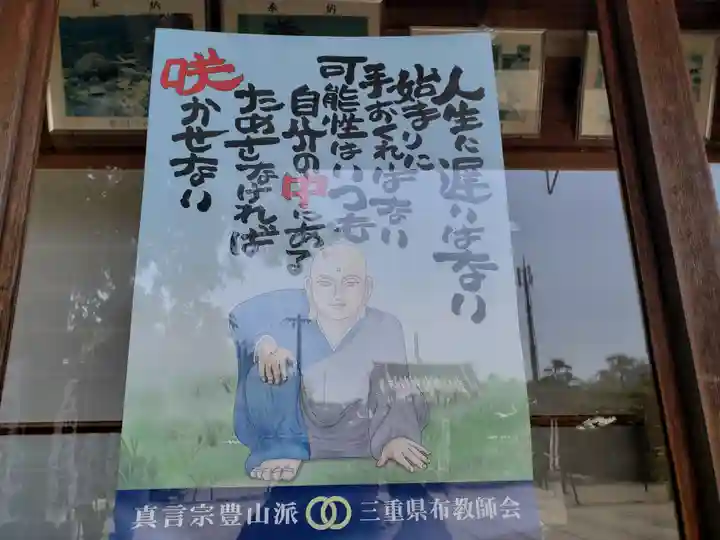 人生に遅いはない
始まりに
手おくれはない
可能性はいつも
自分の中にある
ためさなければ
咲かせない
真言宗豊山派 三重県布教師会
奉納